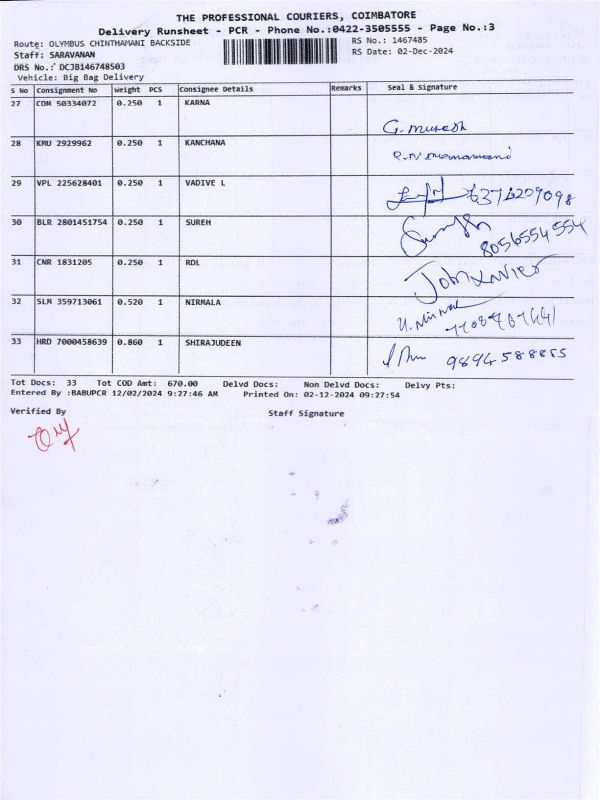 THE PROFESSIONAL COURIERS, COIMBATORE
Delivery Runsheet - PCR - Phone No.:0422-3505555 - Page No.:3
Route: OLYMBUS CHINTHAMANI BACKSIDE
RS No.: 1467485
Staff: SARAVANAN
RS Date: 02-Dec-2024
DRS No.: DCJB146748503
Vehicle: Big Bag Delivery
S No Consignment No Weight PCS Consignee Details Remarks Seal & Signature
27 COM 50334072 0.250 1 KARNA
G. Muresh
28 KMU 2929962 0.250 1 KANCHANA
29 VPL 225628401 0.250 1 VADIVE L
6374209098
30 BLR 2801451754 0.250 1 SUREH
8056554554
31 CNR 1831205 0.250 1 RDL
John Xavier
32 SLM 359713061 0.520 1 NIRMALA
33 HRD 7000458639 0.860 1 SHIRAJUDEEN
9894588855
Tot Docs: 33 Tot COD Amt: 670.00 Delvd Docs: Non Delvd Docs: Delvy Pts:
Entered By :BABUPCR 12/02/2024 9:27:46 AM Printed On: 02-12-2024 09:27:54
Verified By Staff Signature